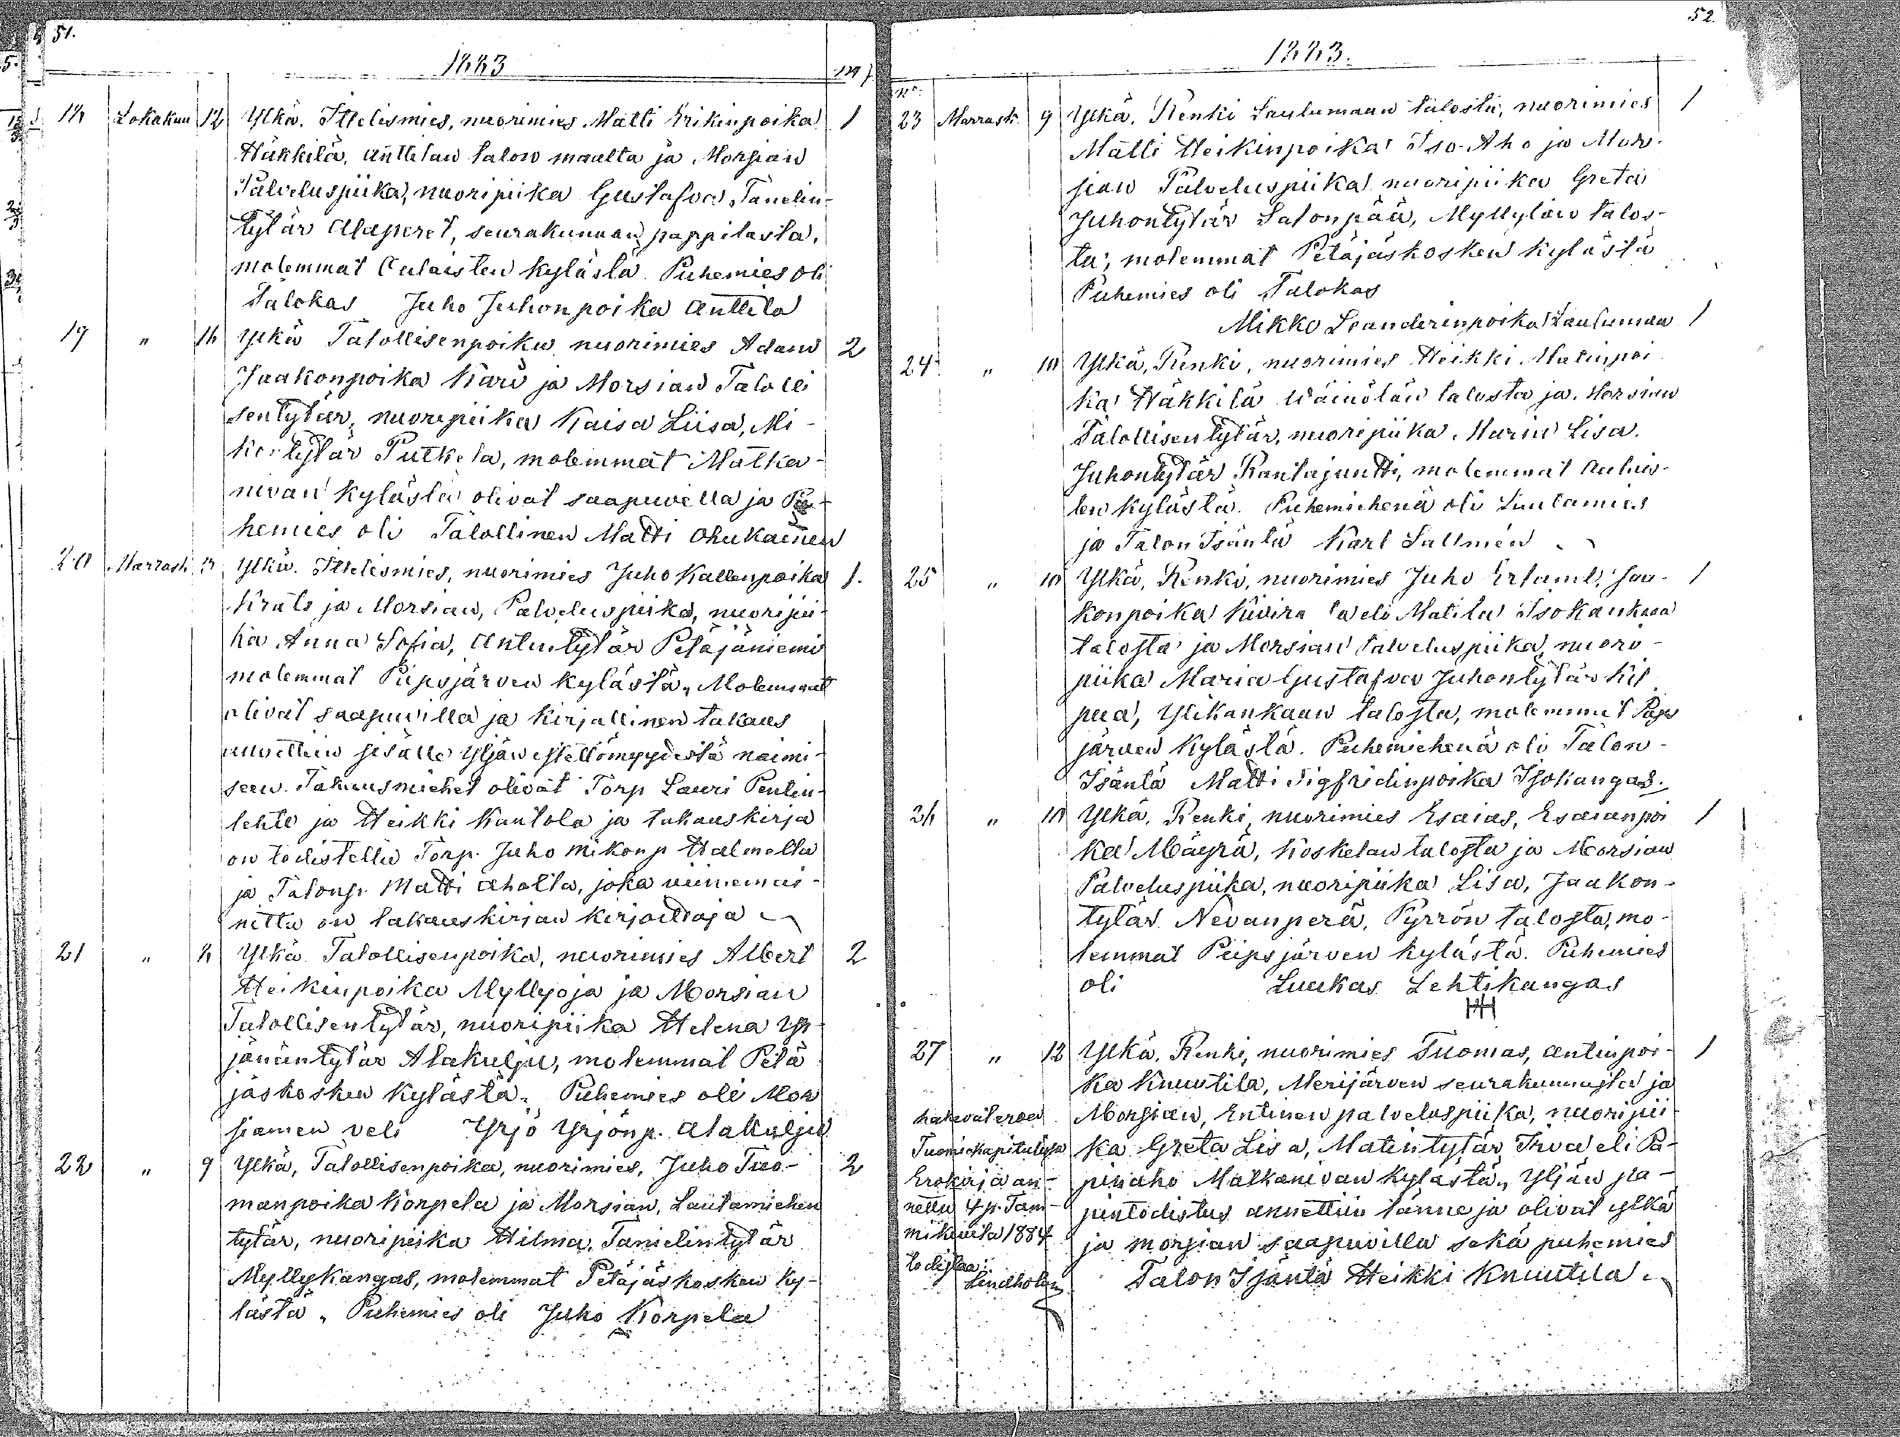 51.
1883
18 Lokakuu 12 Ylkä. Ittelismies, nuorimies Matti Erikinpoika 1
Häkkilä, Anttilan talon maalta ja Morsian
Palveluspiika, nuoripiika Gustafva Tanelin-
tytär Alaperet, seurakunnan pappilasta,
molemmat Oulaisten kylästä. Puhemies oli
Talokas Juho Juhonpoika Anttila
19 " 16 Ylkä Talollisenpoika nuorimies Adam 2
Jaakonpoika Karu ja Morsian Talolli
sentytär, nuoripiika Kaisa Liisa, Mi-
kontytär Putkela, molemmat Matka-
nivan kylästä olivat saapuvilla ja Pu-
hemies oli Talollinen Matti Ohukainen
20 Marrask. 3 Ylkä. Ittelismies, nuorimies Juho Kallenpoika 1.
Kräts ja Morsian, Palveluspiika, nuoripii-
ka Anna Sofia, Antintytär Petäjäniemi
molemmat Piipsjärven kylästä, Molemmat
olivat saapuvilla ja kirjallinen takaus
annettiin sisälle Yljän esteettömyydestä naimi-
seen. Takausmiehet olivat Torp Lauri Pentin-
lehto ja Heikki Kantola ja takauskirja
on todistettu Torp. Juho Mikonp. Halmetta
ja Talonp. Matti Aholta, joka viimemai-
nittu on takauskirjan kirjoittaja
21 " 4 Ylkä Talollisenpoika, nuorimies Albert 2
Heikinpoika Myllyoja ja Morsian
Talollisentytär, nuoripiika Helena Yr-
jänäntytär Alakulju, molemmat Petä
jäskosken kylästä. Puhemies oli Mor
siamen veli Yrjö Yrjönp. Alakulju
22 " 9 Ylkä, Talollisenpoika, nuorimies, Juho Tuo- 2
manpoika Korpela ja Morsian, Lautamiehen
tytär, nuoripiika Hilma, Tanielintytär
Myllykangas, molemmat Petäjäskosken ky-
lästä. Puhemies oli Juho Korpela
52.
1883.
No.
23 Marrask. 9 Ylkä. Renki Laulumaan talosta, nuorimies 1
Matti Heikinpoika Iso-Aho ja Mor-
sian Palveluspiika nuoripiika Greta
Juhontytär Salonpää, Myllylän talos-
ta, molemmat Petäjäskosken kylästä
Puhemies oli Talokas
Mikko Leanderinpoika Laulumaa 1
24 " 10 Ylkä, Renki, nuorimies Heikki Matinpoi
ka Häkkilä Wäinölän talosta ja Morsian
Talollisentytär, nuoripiika Maria Lisa
Juhontytär Rantajuntti, molemmat Oulais-
ten kylästä. Puhemiehenä oli Lautamies
ja Talon Isäntä Karl Sallmén
25 " 10 Ylkä, Renki, nuorimies Juho Erland, Jaa- 1
konpoika Kiviranta eli Matila Isokankaan
talosta ja Morsian Palveluspiika, nuori-
piika Maria Gustafva Juhontytär Kil
pua, Ylikankaan talosta, molemmat Piips
järven kylästä. Puhemiehenä oli Talon-
Isäntä Matti Sigfridinpoika Isokangas.
26 " 10 Ylkä, Renki, nuorimies Esaias, Esaianpoi 1
ka Mäyrä, Koskelan talosta ja Morsian
Palveluspiika, nuoripiika Lisa, Jaakon-
tytär Nevanperä, Pyrrön talosta, mo-
lemmat Piipsjärven kylästä. Puhemies
oli Luukas Lehtikangas
27 " 12 Ylkä. Renki, nuorimies Tuomas, Antinpoi- 1
ka Knuutila, Merijärven seurakunnasta ja
Morsian, Entinen palveluspiika, nuoripii-
ka Greta Lisa, Matintytär Triva eli Pa-
pinaho Matkanivan kylästä, Yljän pa-
pintodistus annettiin tänne ja olivat ylkä
ja morsian saapuvilla sekä puhemies
Talon Isäntä Heikki Knuutila
hakevat eroa
Tuomiokapitulissa
Erokirja an-
nettu 4 p. Tam-
mikuuta 1884
todistaa:
Lindholm